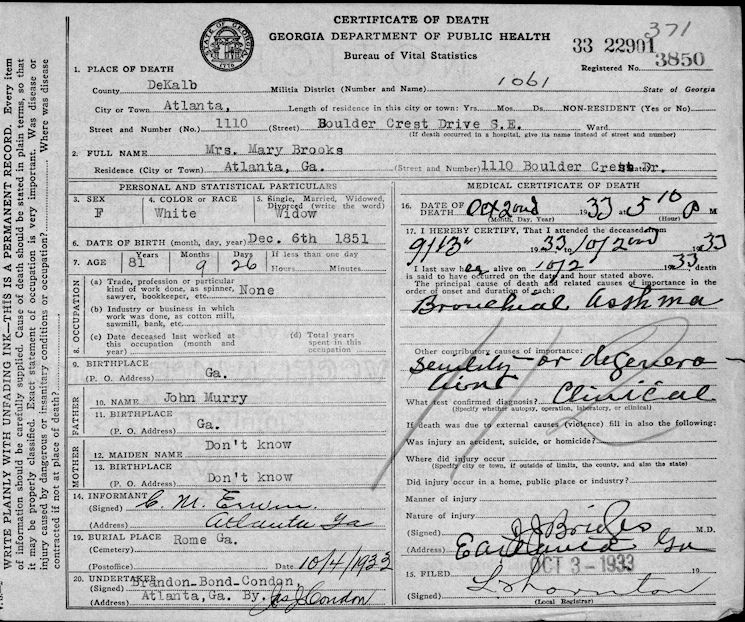 WRITE PLAINLY WITH UNFADING INK—THIS IS A PERMANENT RECORD. Every item
of information should be carefully supplied. Cause of death should be stated in plain terms, so that
it may be properly classified. Exact statement of occupation is very important. Was disease or
injury caused by dangerous or insanitary conditions or occupation? Where was disease
contracted if not at place of death?
CERTIFICATE OF DEATH
GEORGIA DEPARTMENT OF PUBLIC HEALTH
Bureau of Vital Statistics
371
33 22901
Registered No. 3850
1. PLACE OF DEATH
County DeKalb Militia District (Number and Name) 1061 State of Georgia
City or Town Atlanta, Length of residence in this city or town: Yrs. Mos. Ds. NON-RESIDENT (Yes or No)
Street and Number (No.) 1110 (Street) Boulder Crest Drive S.E. Ward
(If death occurred in a hospital, give its name instead of street and number)
2. FULL NAME Mrs. Mary Brooks
Residence (City or Town) Atlanta, Ga. (Street and Number) 1110 Boulder Crest Dr.
PERSONAL AND STATISTICAL PARTICULARS
3. SEX 4. COLOR or RACE 5. Single, Married, Widowed,
Divorced (write the word)
F White Widow
6. DATE OF BIRTH (month, day, year) Dec. 6th 1851
7. AGE Years Months Days If less than one day
81 9 26 Hours Minutes
8. OCCUPATION
(a) Trade, profession or particular
kind of work done, as spinner,
sawyer, bookkeeper, etc. None
(b) Industry or business in which
work was done, as cotton mill,
sawmill, bank, etc.
(c) Date deceased last worked at (d) Total years
this occupation (month and spent in this
year) occupation
9. BIRTHPLACE
(P. O. Address) Ga.
FATHER
10. NAME John Murry
11. BIRTHPLACE
(P. O. Address) Ga.
MOTHER
12. MAIDEN NAME Don't know
13. BIRTHPLACE
(P. O. Address) Don't know
14. INFORMANT
(Signed) C. M. Erwin
(Address) Atlanta Ga
19. BURIAL PLACE Rome Ga.
(Cemetery)
(Postoffice) Date 10/4/1933
20. UNDERTAKER Brandon-Bond-Condon,
(Signed)
(Address) Atlanta, Ga. By. Jas J Condon
MEDICAL CERTIFICATE OF DEATH
16. DATE OF
DEATH Oct 2nd 1933 at 5 10 P M
(Month, Day, Year) (Hour)
17. I HEREBY CERTIFY, That I attended the deceased from
9/13 1933 to 10/2nd 1933
I last saw her alive on 10/2 1933, death
is said to have occurred on the date and hour stated above.
The principal cause of death and related causes of importance in the
order of onset and duration of each:
Bronchial Asthma
Other contributory causes of importance:
Senility or degenera-
tions
What test confirmed diagnosis? Clinical
(Specify whether autopsy, operation, laboratory, or clinical)
If death was due to external causes (violence) fill in also the following:
Was injury an accident, suicide, or homicide?
Where did injury occur
(Specify city or town, if outside of limits, the county, and also the state)
Did injury occur in a home, public place or industry?
Manner of injury
Nature of injury
(Signed) Bridges M.D.
(Address) East Ga
15. FILED OCT 3 - 1933 19
(Signed) L. Thornton
(Local Registrar)